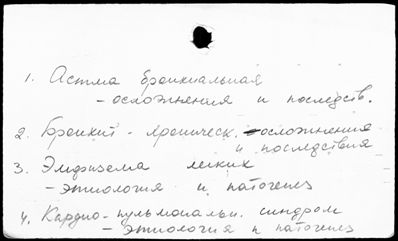 1. Астма бронхиальная
- осложнения и последств.
2. Бронхит - хроническ. осложнения
и последствия
3. Эмфизема легких
- этиология и патогенез
4. Кардио-пульмональн. синдром
- этиология и патогенез